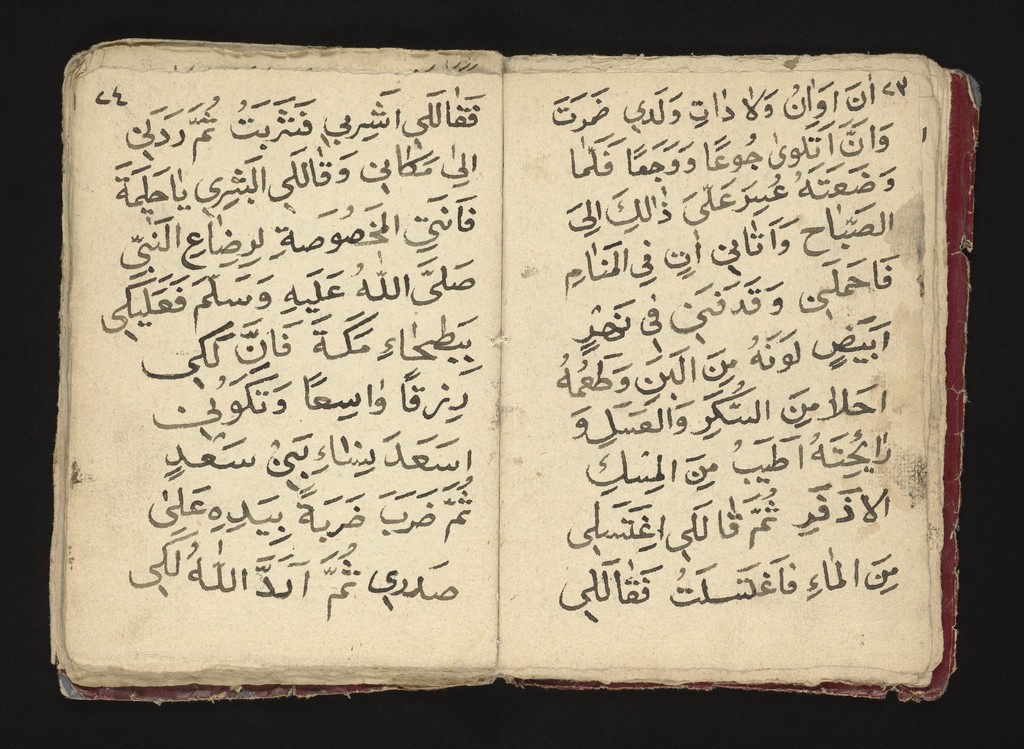 ٢٣
اٰنَ اَوَانُ وَلَا ذَاتِ وَلَدِي ضَرَتَ
وَانَّ اَتَلَوىٰ جُوعًا وَوَجَعًا فَلَمٰا
وَضَعَتَهُ عُسِرَ عَلَىَ ذٰالِكَ اِلىَ
الصَّبٰاح وَاَتٰانِي اٰتٍ فِي المَنٰامِ
فَاحَمَلَنِي وَقَدَفَنَي فِي نَهْرٍ
اَبَيَضٍ لَوَنَهُ مِنَ البَنِ وَطَعمُهُ
اَحَلاَ مِنَ السُّكَرِ وَالعَسَلِ وَ
رٰايِحَتَهُ اَطيَبُ مِنَ المِسَكِ
الاَذَفَرِ ثُمَّ قٰالَكي اغِتَسَلِي
مِنَ المٰاءِ فاَغتَسَلتُ فَقٰالَلي
٢٤
فَقٰالَلي اَشَرِبي فَشَرِبَتُ ثُمَّ رَدَنِي
الِىٰ مَكَانِي وَقٰالَلي البَشِرِي يٰاحَلِيمَةَ
فَانَتِي المَخصُوصَةِ لِرِضٰاعِ النَبّيِ
صَلىَّ اللّٰهُ عَلَيهِ وَسَلَمَ فَعَلَيَكي
بِبَطحٰاءِ مَكَةَ فَانَّ لَكي
رِزقًا وٰاسِعًا وَتَكَوُنِي
اسَعَدَ نِسٰاءِ بَنِي سَعَدٍ
ثُمَّ ضَرَبَ ضَرَبَةً بِيَدِهِ عَلىٰ
صَدرِي ثُمَّ اَلَدَّ اللّٰهُ لَكي